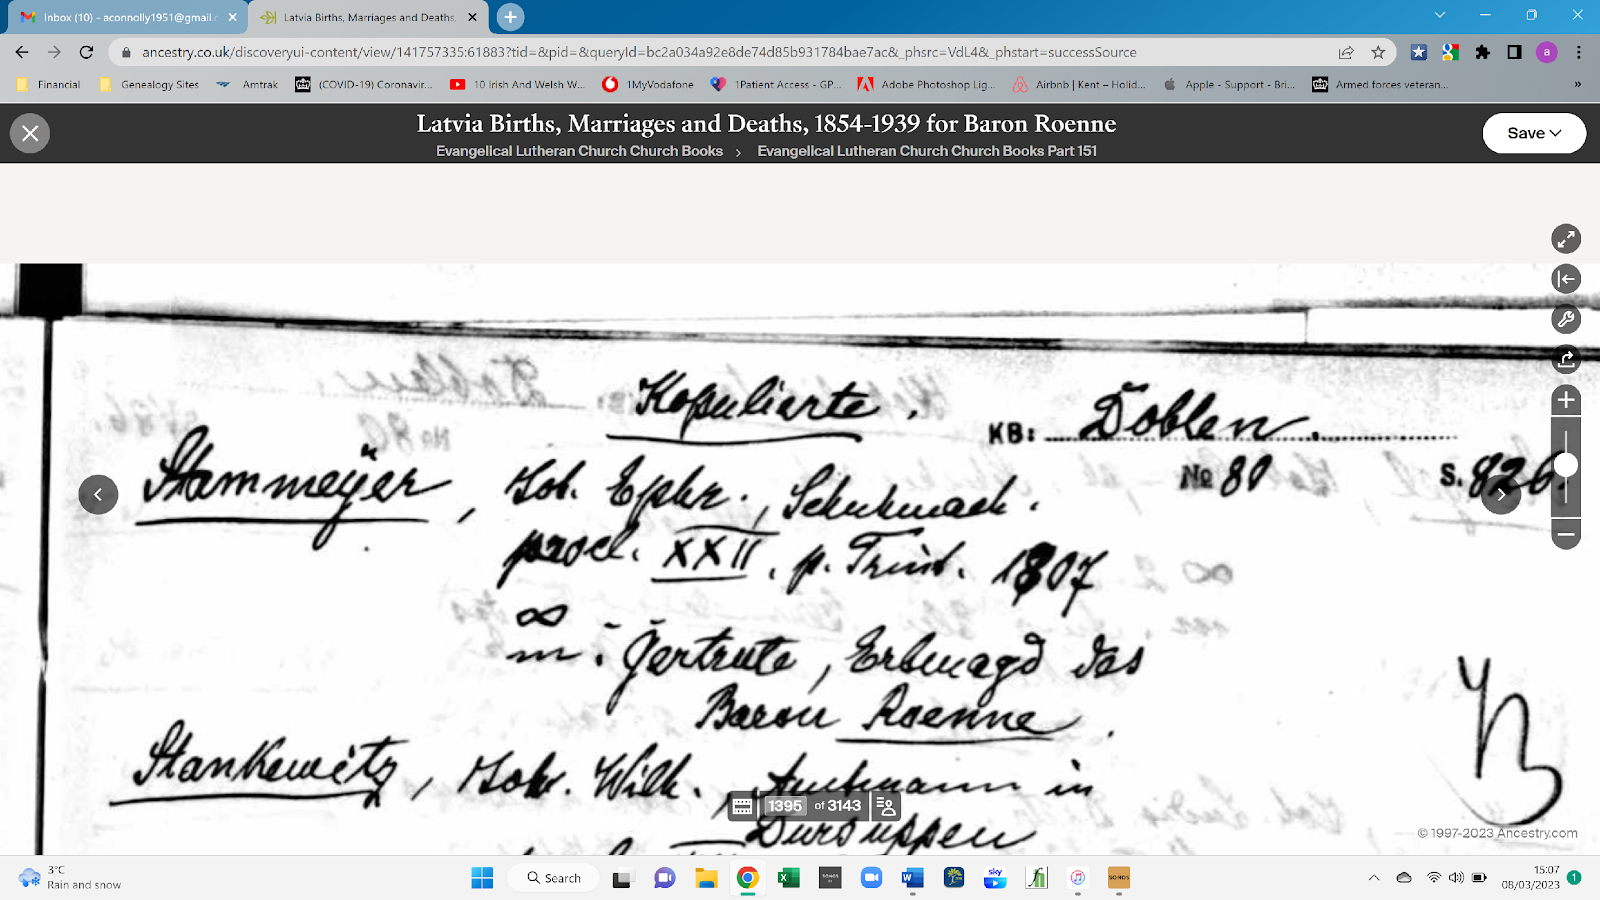 Inbox (10) - aconnolly1951@gmail.c
Latvia Births, Marriages and Deaths,
ancestry.co.uk/discoveryui-content/view/141757335:61883?tid=&pid=&queryId=bc2a034a92e8de74d85b931784bae7ac&_phsrc=VdL4&_phstart=successSource
a
Financial Genealogy Sites Amtrak (COVID-19) Coronavir... 10 Irish And Welsh W... 1MyVodafone 1Patient Access - GP... Adobe Photoshop Lig... Airbnb | Kent – Holid... Apple - Support - Bri... Armed forces veteran... »
Latvia Births, Marriages and Deaths, 1854-1939 for Baron Roenne
Evangelical Lutheran Church Church Books › Evangelical Lutheran Church Church Books Part 151
Save
Kopulierte.
KB: Doblen.
No 80 S. 826.
Stammeÿer, Joh. , Schuhmach.
procl. XXII. p. Trinit. 1807
∞
m. Gertrute, Erbmagd des
Baron Roenne.
Stankewitz, Joh. Wilh., Amtmann in
1395 of 3143
© 1997-2023 Ancestry.com
3°C
Rain and snow
Search
SONOS
sky
SONOS
15:07
08/03/2023
1